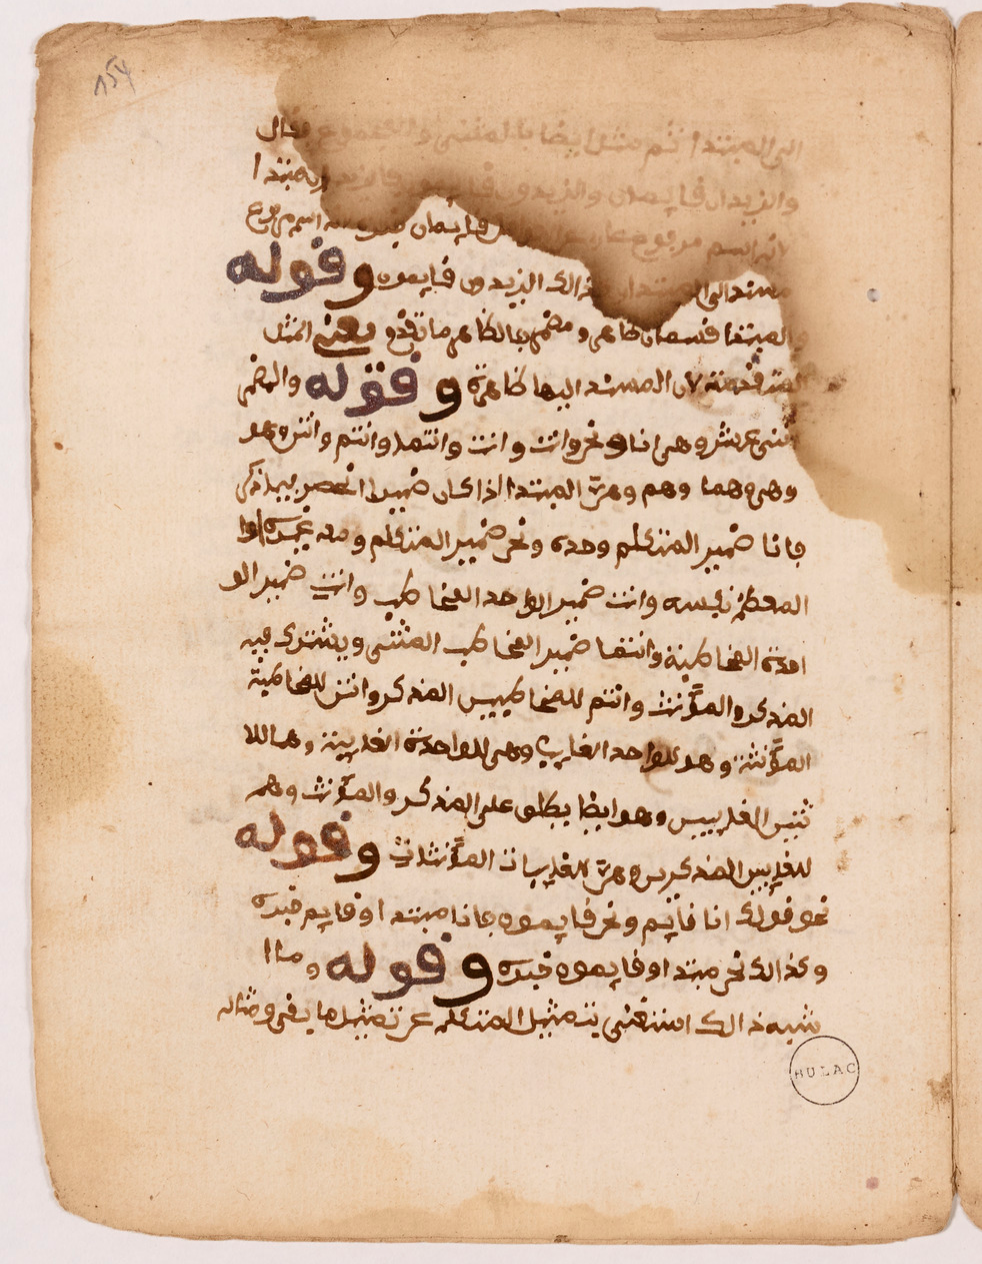 ٨٥٤
الى المبتدا ثم مثل ايضا بالمثنى والمجموع فقال
والزيدان قايمان والزيدون قايمون
اسم مرفوع قايمان خبره اسم مرفوع
مسند الى ذالك الزيدون قايمون وقوله
والمبتدا قسمان ظاهر ومضمر فالظاهر ما تقدم يعني المثل
المتقدمة لان المسند اليها ظاهرة وقوله والمضمر
اثنى عشر وهي انا ونحن وانت وانت وانتما وانتم وانتن وهو
وهي وهما وهم وهن المبتدا اذا كان ضميرا انحصر فيما ذكر
فانا ضمير المتكلم وحده ونحن ضمير المتكلم ومعه غيره اوا
المعظم نفسه وانت ضمير الواحد المخاطب وانت ضمير الو
احدة المخاطبة وانتما ضمير المخاطب المثنى ويشترك فيه
المذكر والمؤنث وانتم للمخاطبيين المذكر وانتن للمخاطبة
المؤنثة وهو للواحد الغايب وهي للواحدة الغايبة وهما للا
ثنين الغايبين وهو ايظا يطلق على المذكر والمؤنث وهم
للغايبين المذكرين وهن للغايبات المؤنثات وقوله
نحو قولك انا قايم ونحن قايمون فانا مبتدا وقايم خبره
وكذالك نحن مبتدا وقايمون خبره وقوله وما ا
شبه ذالك استغنى بتمثيل المتكلم عن تمثيل ما بقي ومثاله
BULAC